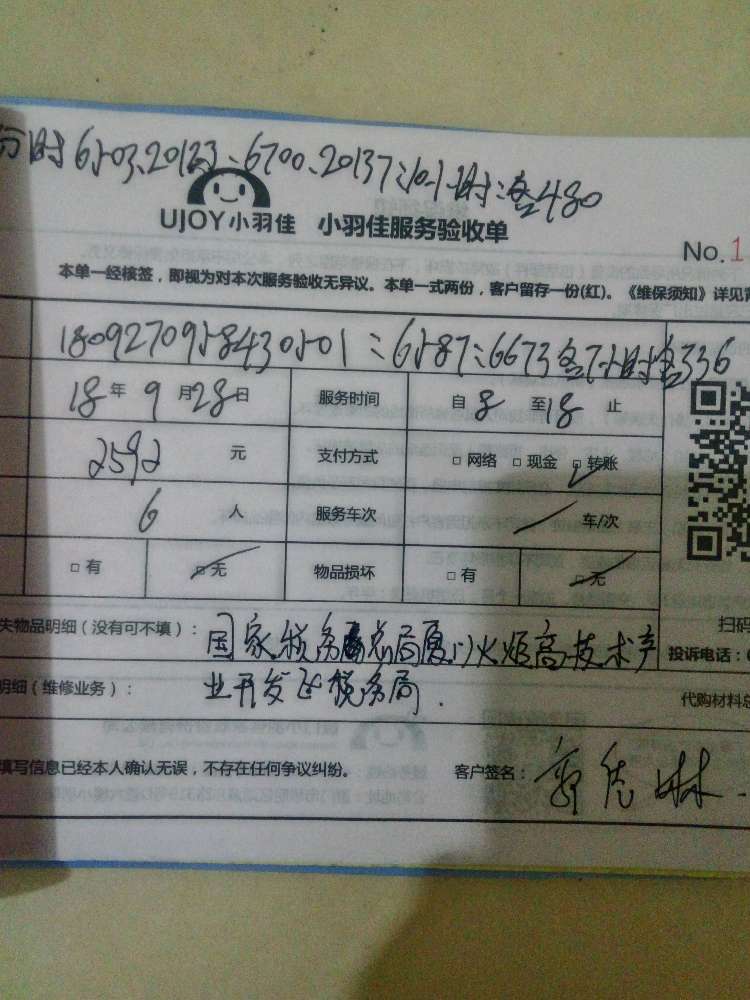 时6503、20123、6700、20137:10小时:各480
UJOY小羽佳 小羽佳服务验收单
No.1
本单一经核签，即视为对本次服务验收无异议。本单一式两份，客户留存一份(红)。《维保须知》详见
1809270958430501:6587:6673各7小时各336
18年9月28日 服务时间 自8至18止
2592元 支付方式 □网络 □现金 □转账
6人 服务车次 车/次
□有 □无 物品损坏 □有 □无
扫码
失物品明细（没有可不填）： 国家税务总局厦门火炬高技术产
投诉电话：
业开发区税务局.
明细（维修业务）：
代购材料总
填写信息已经本人确认无误，不存在任何争议纠纷。 客户签名：